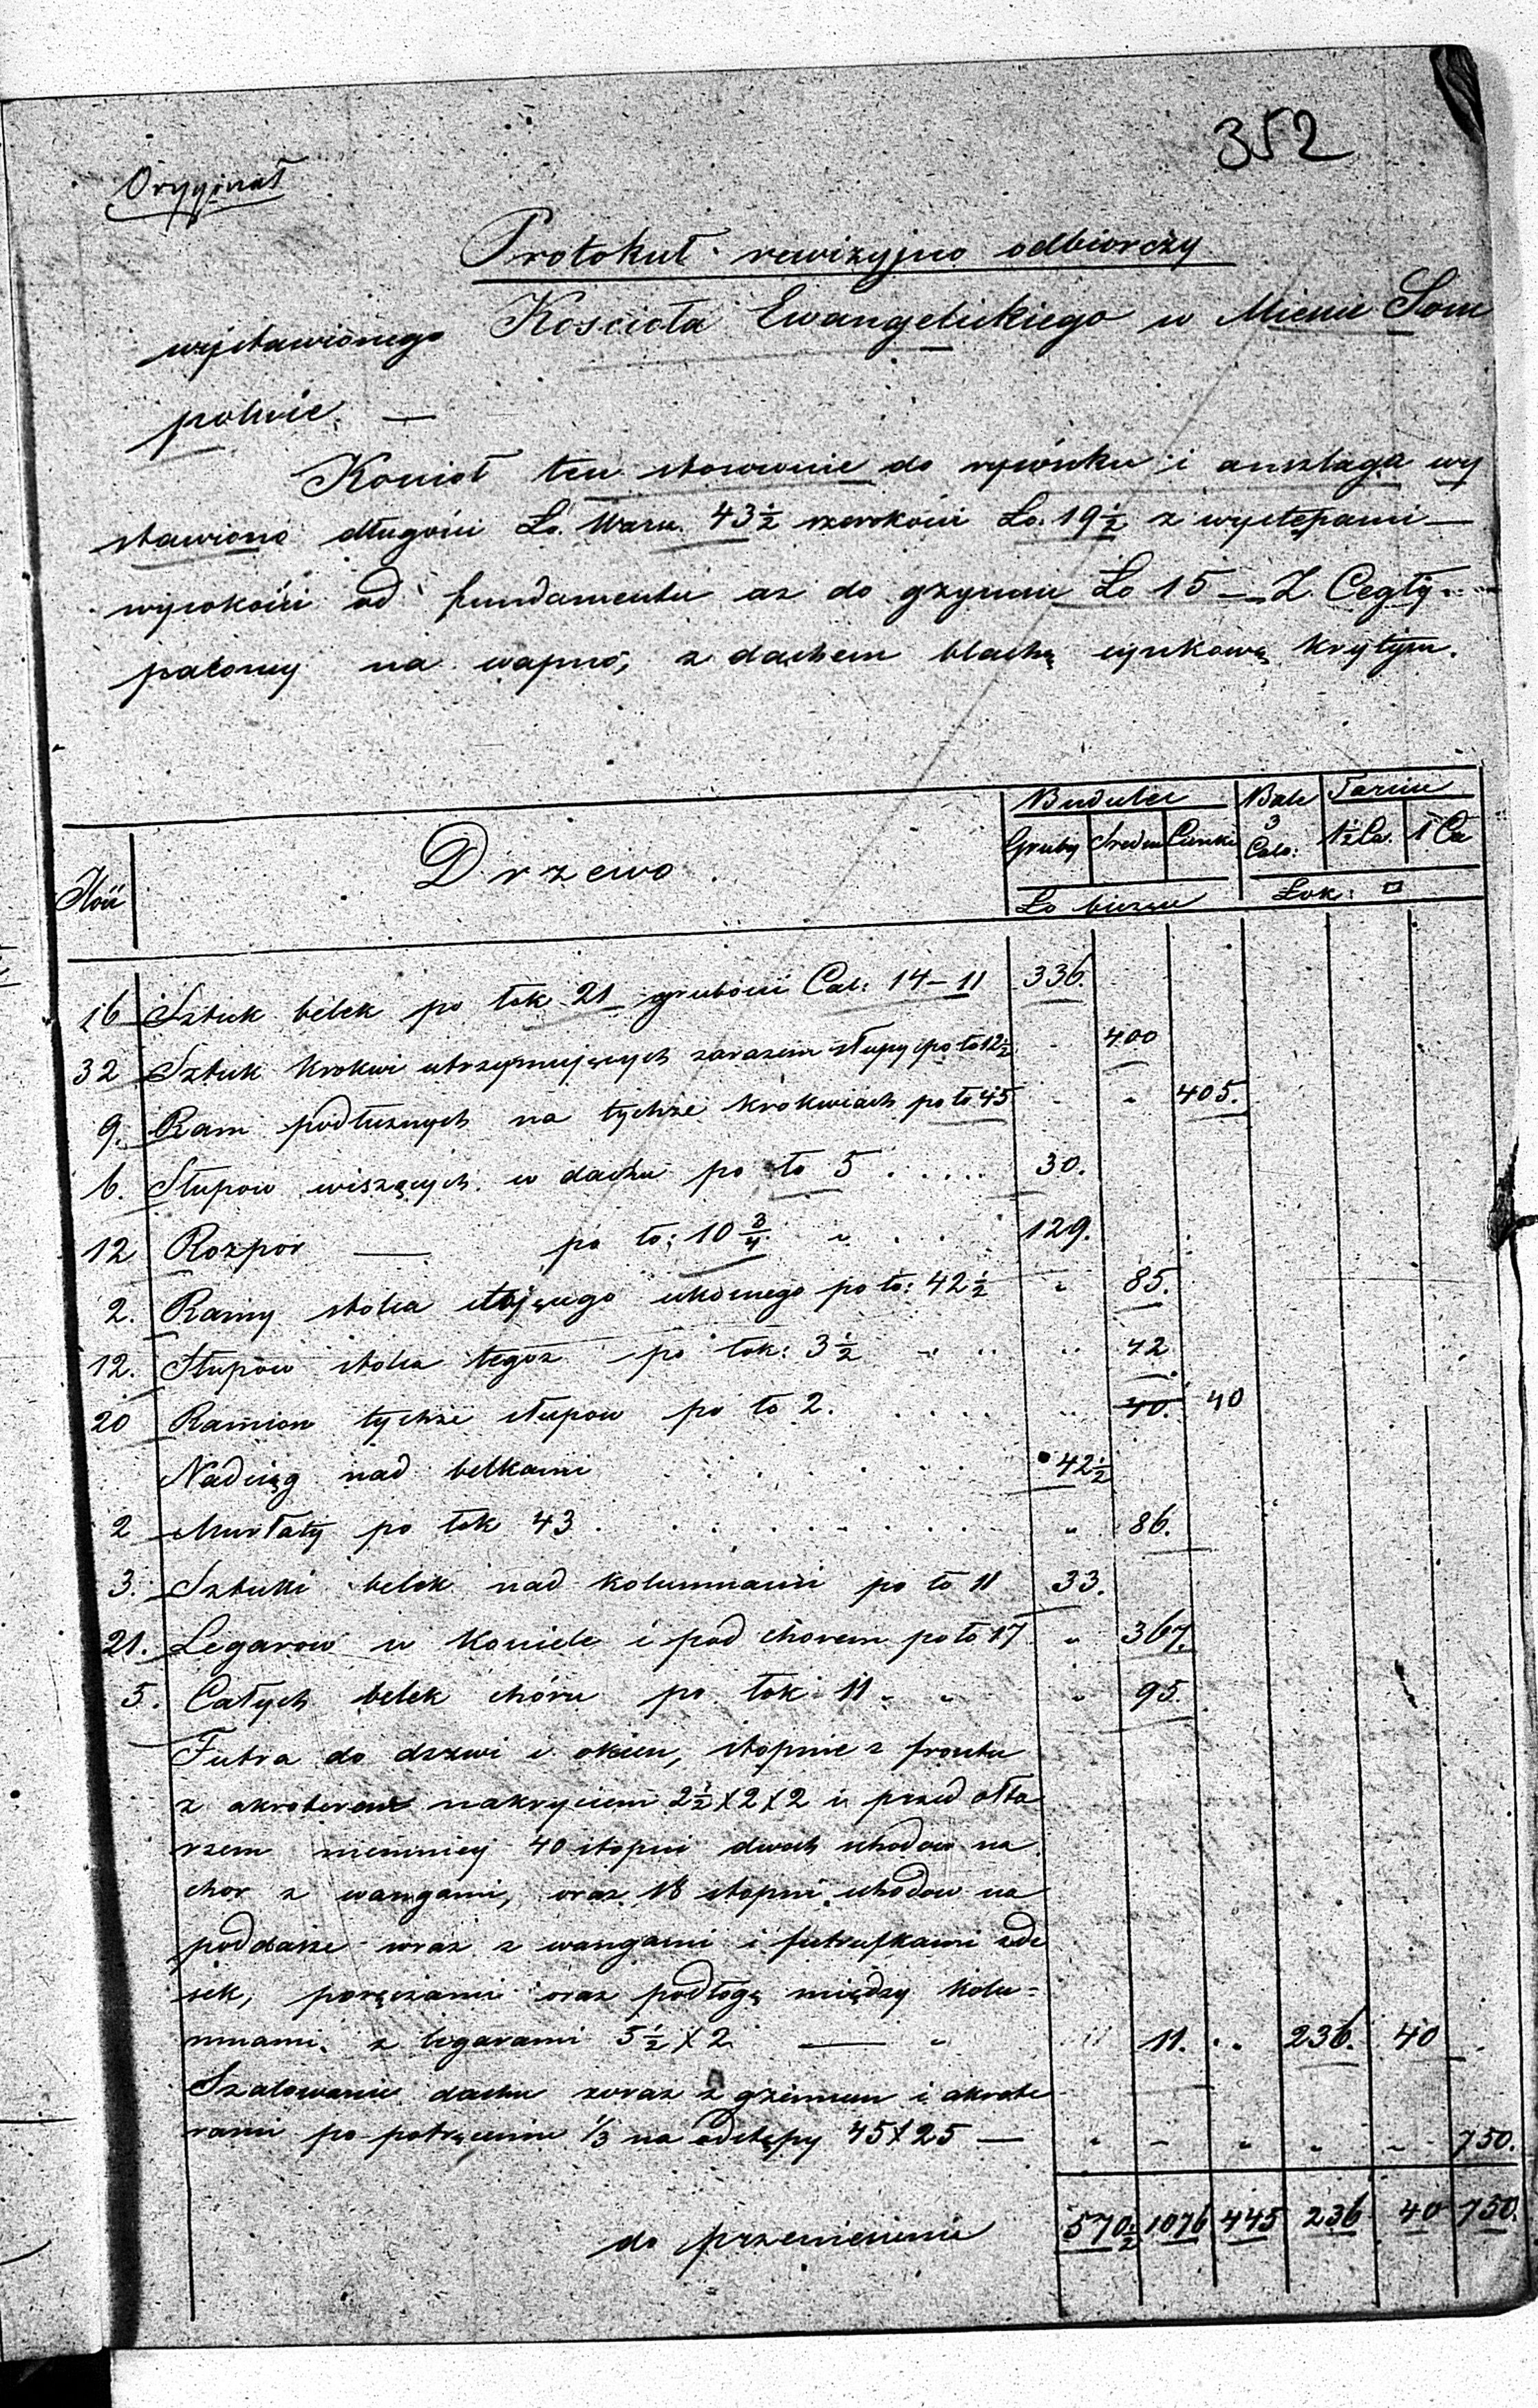 352
Oryginał
Protokuł rewizyjno odbiorczy
wystawionego Kościoła Ewangelickiego w Mieście Som
polnie. —
Kościoł ten stosownie do rysunku i anszlagu wy
stawiono długości Ło. Warsz. 43½ szerokości Ło. 19½ z występami —
wysokości od fundamentu az do gzymsu Ło 15 — Z Cegły
paloney na wapno, z dachem blachą cynkową krytym.
Ilość Drzewo Budulec Bale 3 Calo: Tarcice
Gruby Sredni Cienki 1½ Ca. 1 Ca
Ło bieżące Łok: □
16 Sztuk belek po łok 21 grubości Cal: 14–11 336.
32 Sztuk krokwi utrzymujących zarazem słupy po ło 12½ " 400
9. Ram podłużnych na tychże krokwiach po ło 45 " " 405.
6. Słupow wiszących w dachu po ło 5 . . . . . 30.
12 Rozpor — po ło: 10¾ " . . . 129.
2. Ramy stolca stojącego ukośnego po ło: 42½ " 85.
12. Słupow stolca tegoż po łok: 3½ " " " 42
20 Ramion tychże słupow po ło 2. . . . . " 40. 40
Nadciąg nad belkami . . . . . . 42½
2 Murłaty po łok 43 . . . . . . . . " 86.
3. Sztuki belek nad kolumnami po ło 11 33.
21. Legarow w Kościele i pod chorem po ło 17 " 367.
5. Całych belek chóru po łok 11 " " " 95.
Futra do drzwi i okien, stopnie z frontu
z akroteram nakryciem 2½ X 2 X 2 i przed ołta
rzem niemniey 40 stopni dwoch schodow na
chor z wangami, oraz 18 stopni schodow na
poddasze wraz z wangami i futrufkami z de
sek, poręczami oraz podłogą między kolu=
mnami z legarami 5½ X 2 — " " 11. " 236. 40 "
Szalowanie dachu wraz z gzemsem i akrote
rami po potrąceniu ⅓ na odstępy 45 X 25 — " – " " " 750.
do przeniesienia 570½ 1076 445 236 40 750.